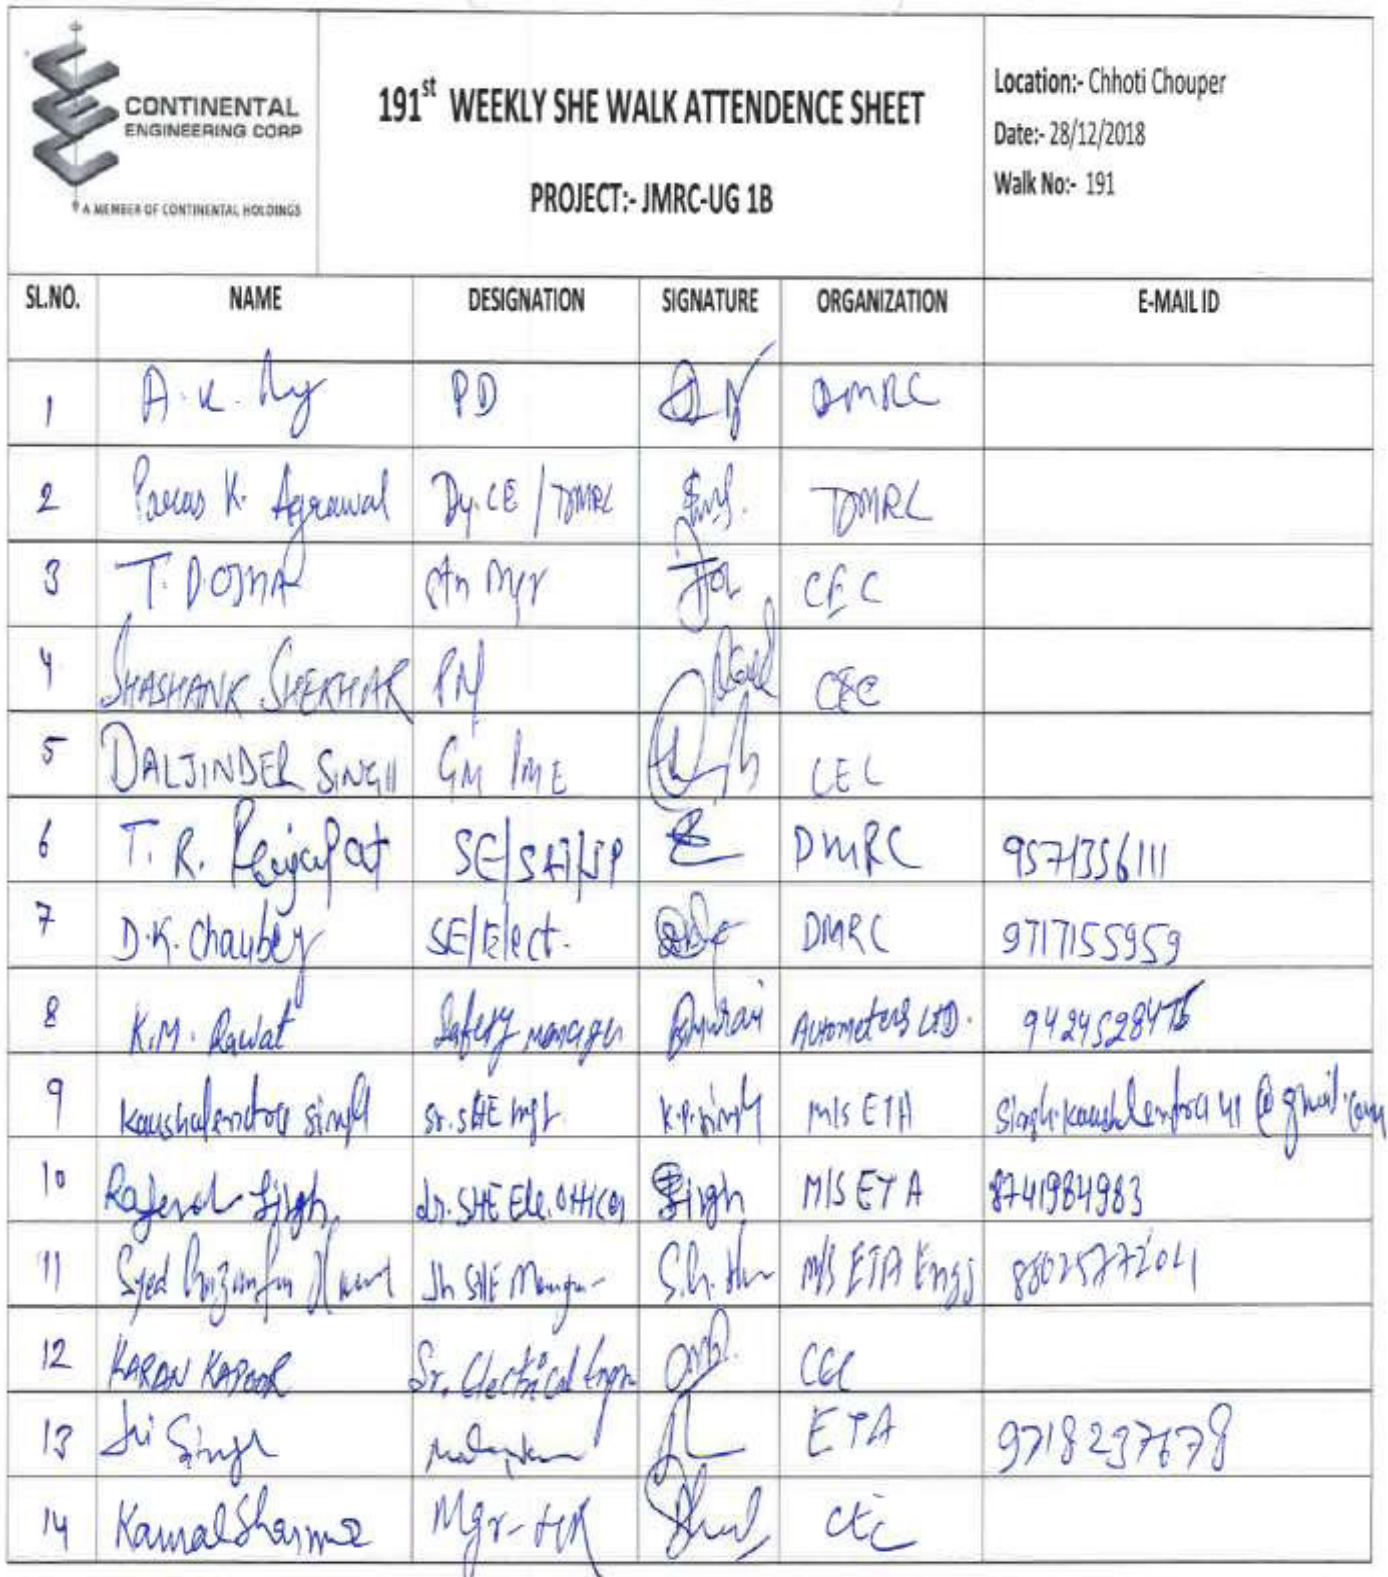 CONTINENTAL
ENGINEERING CORP
A MEMBER OF CONTINENTAL HOLDINGS
191st WEEKLY SHE WALK ATTENDENCE SHEET
PROJECT:- JMRC-UG 1B
Location:- Chhoti Chouper
Date:- 28/12/2018
Walk No:- 191
SL.NO. NAME DESIGNATION SIGNATURE ORGANIZATION E-MAIL ID
1 A.K. PD DMRC
2 Paras K. Agrawal Dy. CE / DMRC DMRC
3 T. D. OJHA Stn Mgr CEC
4 SHASHANK SHEKHAR PM CEC
5 DALJINDER SINGH GM PME CEC
6 T. R. DMRC 9571356111
7 D.K. Chaubey SE/Elect. DMRC 9717155959
8 K.M. Rawat Safety manager Autometers LTD.
9 Kaushalendra singh Sr. SHE mgr K.P. Singh M/S ETA
10 Singh Jr. SHE Ele. Officer Singh M/S ETA 8741984983
11 Syed SHE M/S ETA Engg
12 KARAN KAPOOR Sr. Electrical Engr. CEC
13 Singh ETA
14 Kamal Sharma Mgr-HR CEC